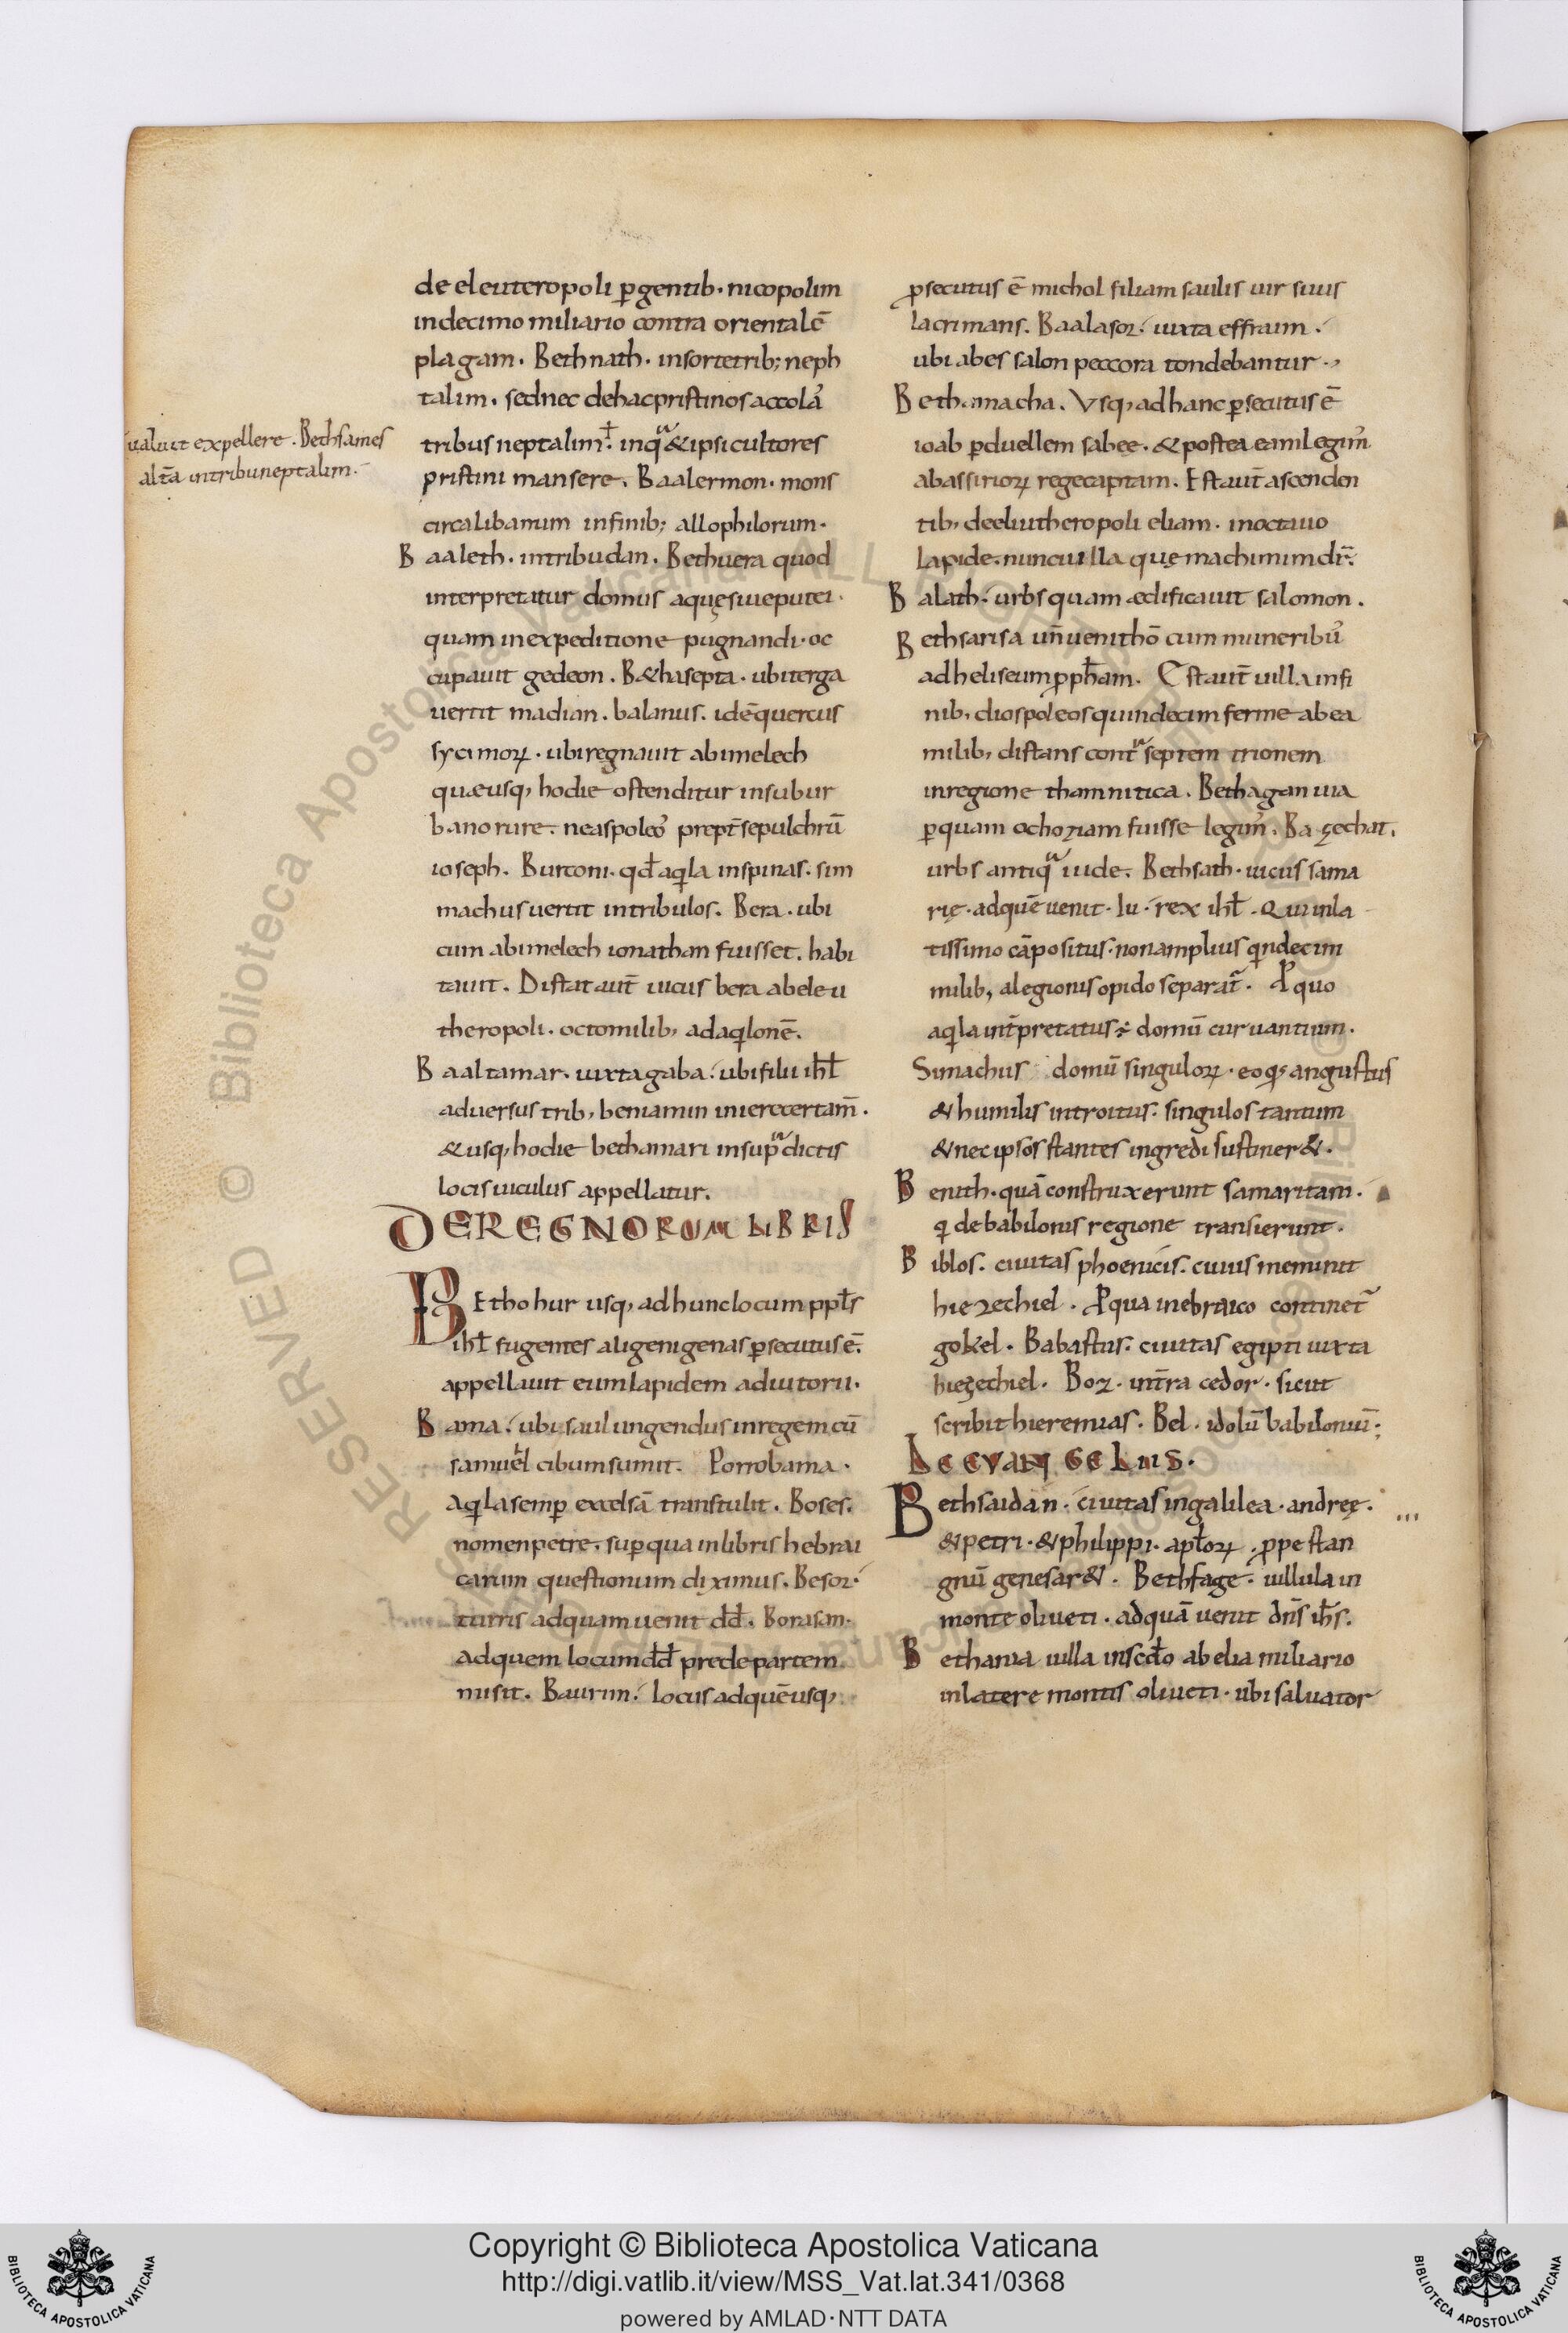 de eleuteropoli ꝑgentib· nicopolim
indecimo miliario contra orientalē
plagam. Bethnath. insortetrib; neph
talim. sednec dehacpristinosaccolaʼ
ualuit expellere. Bethsames
altā intribuneptalim.
tribus neptalim. inqua &ipsi cultores
pristini mansere. Baalermon. mons
circalibanum infinib; allophilorum.
Baaleth. intribudan. Bethuera quod
interpretatur domus aquęsiueputei.
quam inexpeditione pugnandi. oc
cupauit gedeon. B&hasepta. ubiterga
uertit madian. balanus. idēquercus
sycimoꝝ. ubiregnauit abimelech
quæusq, hodie ostenditur insubur
bano rure. neaspoleoʼ prept̄sepulchrū
ioseph. Burconi. qđ aꝗla inspinas. sim
machus uertit intribulos. Bera. ubi
cum abimelech ionathan fuisset. habi
tauit. Distat aut̄ uicus bera abeleu
theropoli. octomilib, adaꝗlonē.
Baaltamar. iuxtagaba. ubifilii ihł
aduersus trib, beniamin inierecertam̄.
&usq, hodie bethamari insupradictis
locis uiculus appellatur.
DEREGNORUM LIBRIS
BEthohur usq, adhunclocum ppłs
ihł fugentes aligenigenas ꝑsecutus ē.
appellauit eumlapidem adiutorii.
Bama. ubi saul ungendus inregem cū
samuel cibumsumit. Porrobama.
aꝗla semꝑ excelsā transtulit. Boses.
nomenpetre. suꝑqua inlibris hebrai
carum questionum diximus. Besor.
turris adquam uenit dđ. Borasan.
adquem locum dđ predepartem
misit. Baurim. locus adquēusq,
ꝓsecutus ē michol filiam saulis uir suus
lacrimans. Baalasor. iuxta effraim.
ubi abes salon peccora tondebantur.
Bethamacha. Vsq, ad hanc ꝑsecutus ē
ioab ꝑduellem sabee. & postea eamlegimʼ
abassirioꝝ regecaptam. Est aut̄ ascenden
tib, deeliutheropoli eliam. inoctauo
lapide. nunc uilla quę machimim dr̄.
Balath. urbs quam ædificauit salomon.
Bethsarisa un̄uenithō cum muneribuʼ
ad heliseum ꝓpħam. Est aut̄ uilla infi
nib, diospoleos quindecim ferme abea
milib, distans contra septem trionem
inregione thamnitica. Bethagan uia
ꝑquam ochoziam fuisse legimʼ. Bazechat.
urbs antiqua iude. Bethsath. uicus sama
rię. adquē uenit. Iu. rex ihł. Qui inla
tissimo cāpositus. nonamplius ꝗndecim
milib, alegionis opido separat̄. P quo
aꝗla int̄pretatus ÷ domū curuantium.
Simachus domū singuloꝝ. eoq, angustus
& humilis introitus. singulos tantum
& nec ipsos stantes ingredi sustiner&.
Benith. quā construxerunt samaritani.
ꝗ debabilonis regione transierunt.
Biblos. ciuitas phoenicis. cuius meminit
hiezechiel. Pqua inebraico continet̄
gobel. Babastus. ciuitas egipti iuxta
hiezechiel. Boz. int̄ra cedor. sicut
scribit hieremias. Bel. idolū babiloniū.
De EVANGELIIS.
Bethsaidan. ciuitas ingalilea. andreę.
&petri. &philippi. apłoꝝ. ꝓpe stan
gnū genesar&. Bethfage. uillula in
monte oliueti. adquā uenit dn̄s ih̄s.
Bethania uilla inscđo ab elia miliario
inlatere montis oliueti. ubi saluator
RESERVED © Biblioteca Apostolica Vaticana
Copyright © Biblioteca Apostolica Vaticana
http://digi.vatlib.it/view/MSS_Vat.lat.341/0368
powered by AMLAD·NTT DATA
BIBLIOTECA APOSTOLICA VATICANA
BIBLIOTECA APOSTOLICA VATICANA